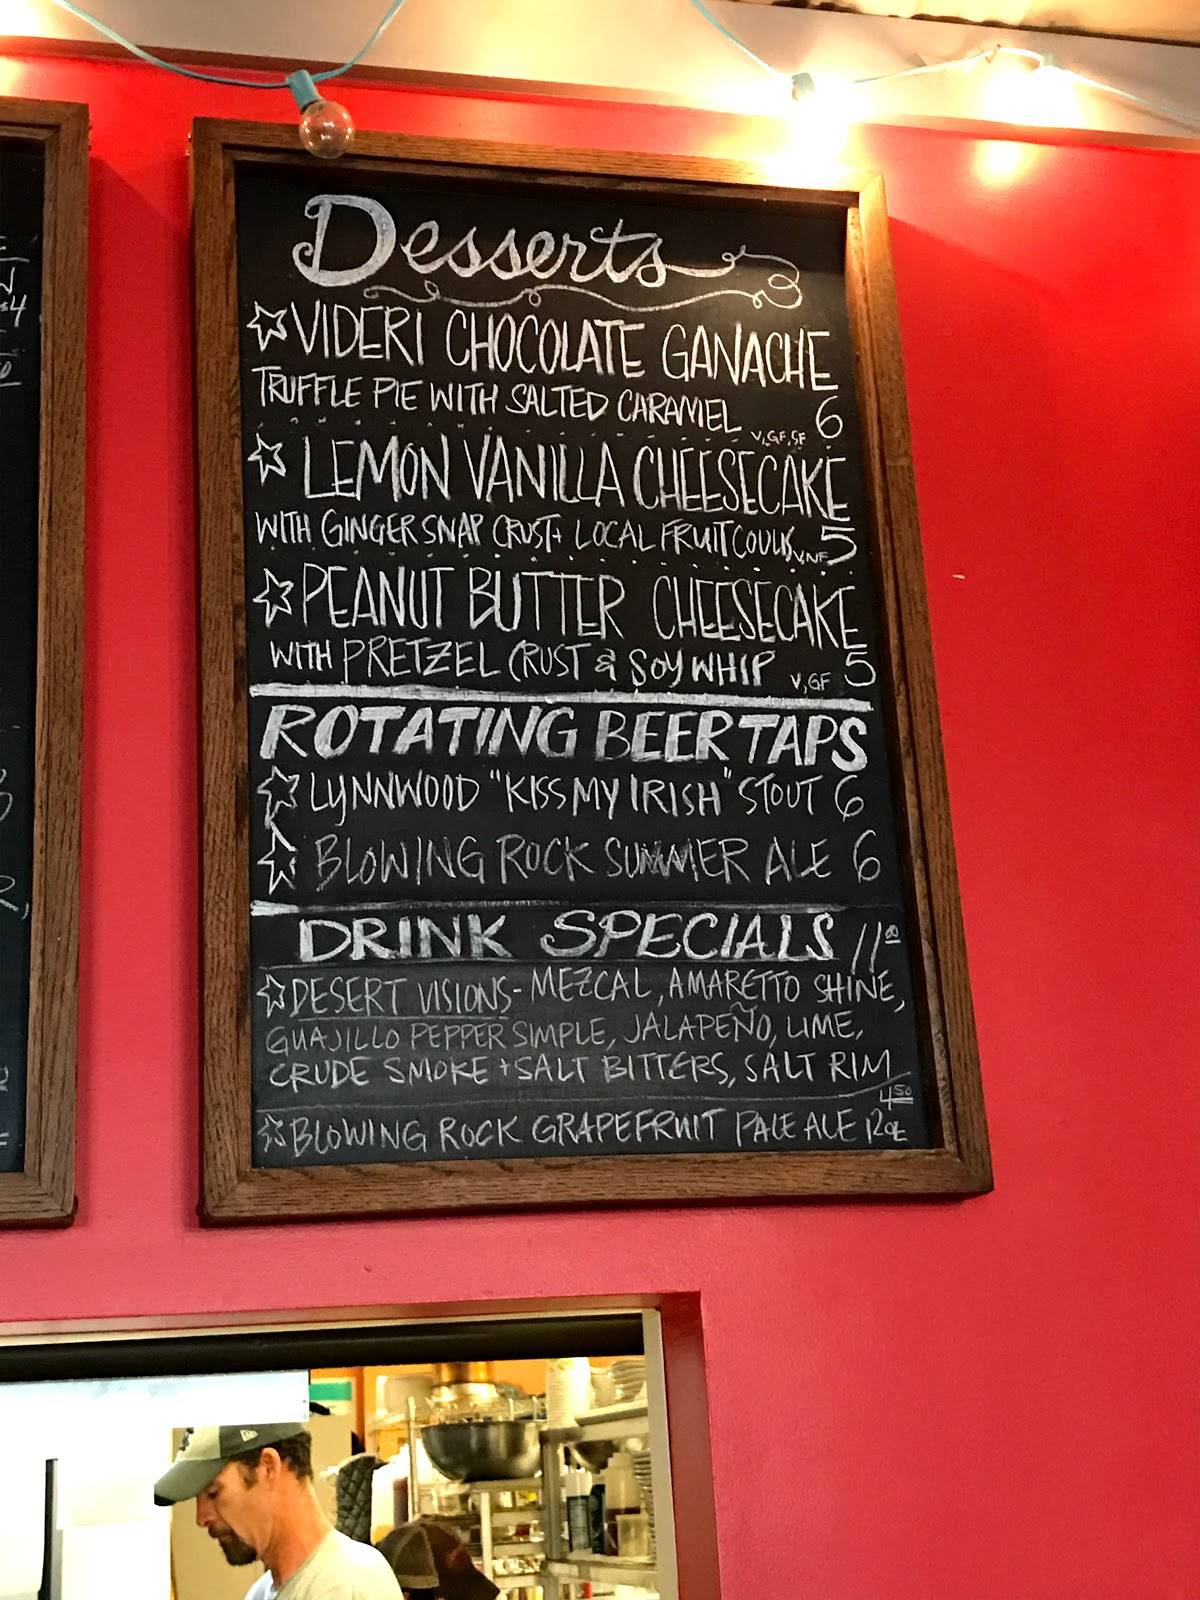 Desserts
☆ VIDERI CHOCOLATE GANACHE
TRUFFLE PIE WITH SALTED CARAMEL V,GF,SF 6
☆ LEMON VANILLA CHEESECAKE
WITH GINGER SNAP CRUST + LOCAL FRUIT COULIS V,NF 5
☆ PEANUT BUTTER CHEESECAKE
WITH PRETZEL CRUST & SOY WHIP V,GF 5
ROTATING BEER TAPS
☆ LYNNWOOD "KISS MY IRISH" STOUT 6
☆ BLOWING ROCK SUMMER ALE 6
DRINK SPECIALS 11.00
☆ DESERT VISIONS - MEZCAL, AMARETTO SHINE,
GUAJILLO PEPPER SIMPLE, JALAPEÑO, LIME,
CRUDE SMOKE + SALT BITTERS, SALT RIM
4.50
☆ BLOWING ROCK GRAPEFRUIT PALE ALE 12oz